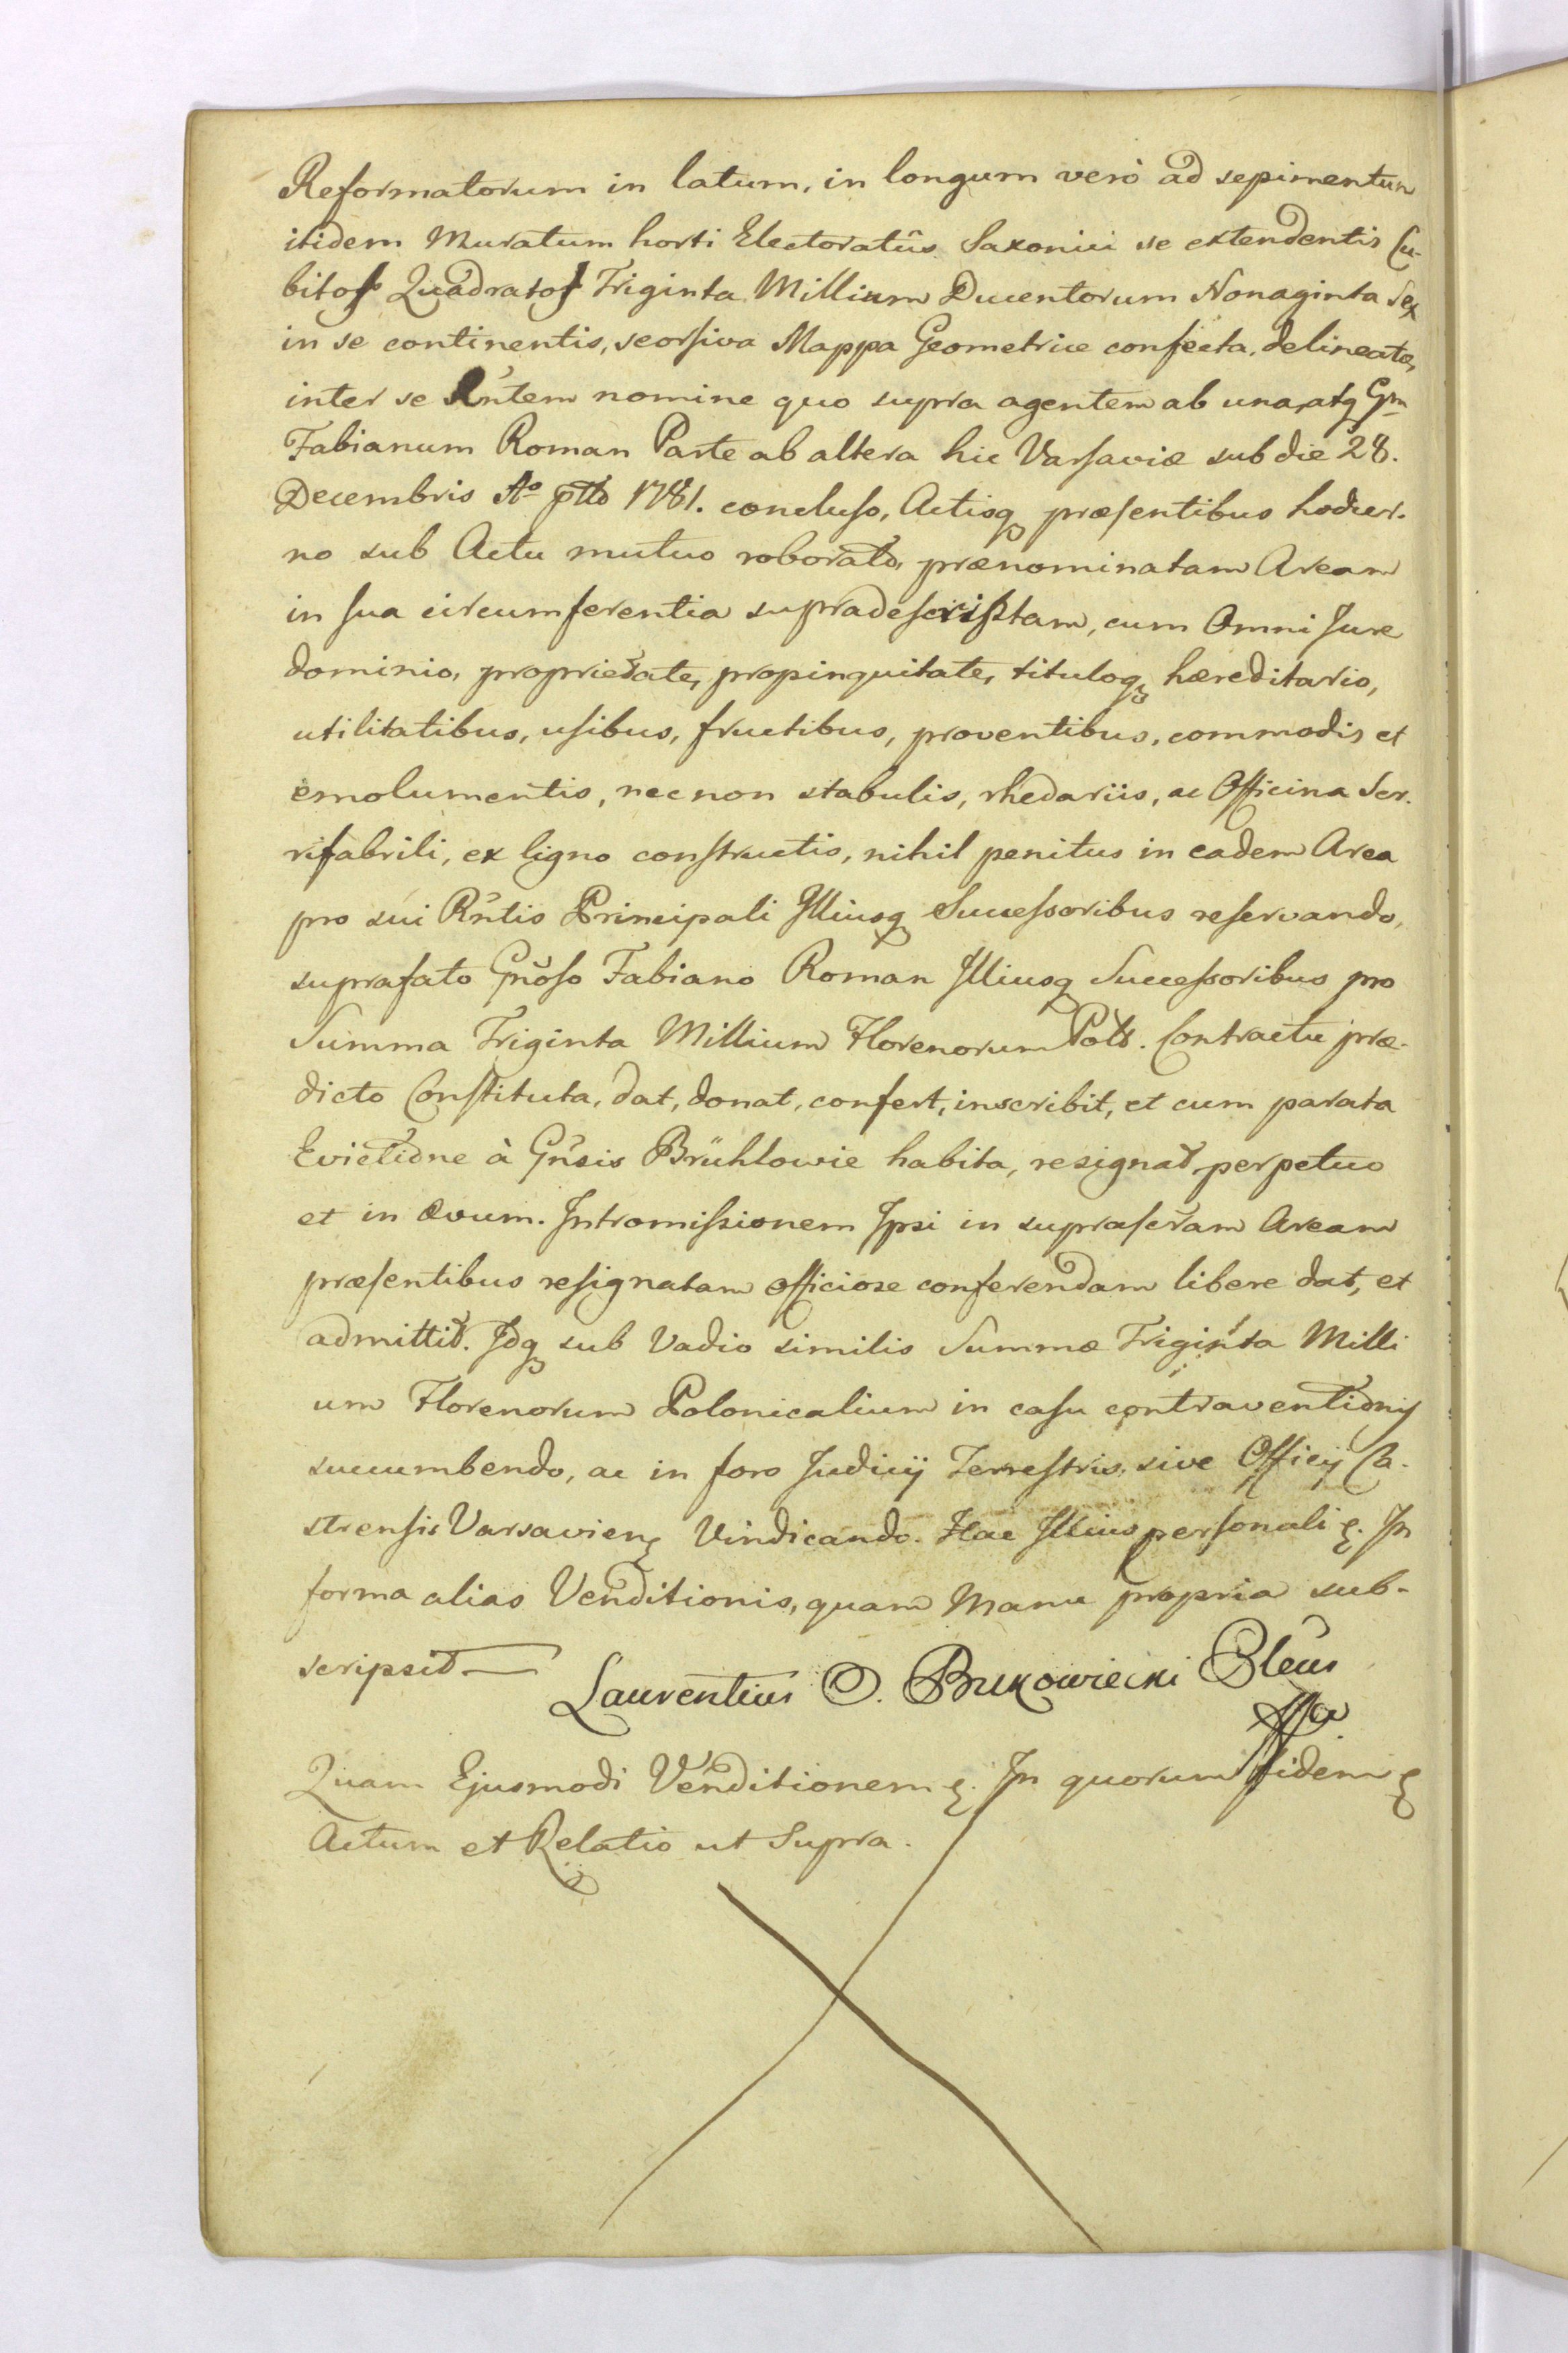 Reformatorum in latum, in longum verò ad sepimentum
itidem Muratum horti Electoratûs Saxonici se extendentis Cu-
bitos Quadratos Triginta Millium Ducentorum Nonaginta Sex
in se continentis, seorsiva Mappa Geometrice confecta, delineatæ,
inter se Rñtem nomine quo supra agentem ab una, atq Gm
Fabianum Roman Parte ab altera hic Varsaviæ sub die 28.
Decembris Ao ptto 1781. concluso, Actisq præsentibus hodier-
no sub Actu mutuo roborato, prænominatam Aream
in sua circumferentia supradescriptam, cum Omni Jure
dominio, proprietate, propinquitate, tituloq hæreditario,
utilitatibus, usibus, fructibus, proventibus, commodis et
emolumentis, nec non stabulis, rhedariis, ac Officina Fer-
rifabrili, ex ligno constructis, nihil penitus in eadem Area
pro sui Rñtis Principali Illiusq Successoribus reservando,
suprafato Gñoso Fabiano Roman Illiusq Successoribus pro
Summa Triginta Millium Florenorum Poll. Contractu præ-
dicto Constituta, dat, donat, confert, inscribit, et cum parata
Evictione à Gñsis Brühlowie habita, resignat perpetuo
et in ævum. Intromissionem Ipsi in suprafatam Aream
præsentibus resignatam officiose conferendam libere dat, et
admittit. Idq sub Vadio similis Summæ Triginta Milli
um Florenorum Polonicalium in casu contraventionis
succumbendo, ac in foro Judicij Terrestris, sive Officij Ca-
strensis Varsavien Vindicando. Hac Illius personali &. In
forma alias Venditionis, quam Manu propria sub-
scripsit
Laurentius O. Bukowiecki Pleus
Quam Ejusmodi Venditionem &. In quorum fidem &
Actum et Relatio ut Supra.